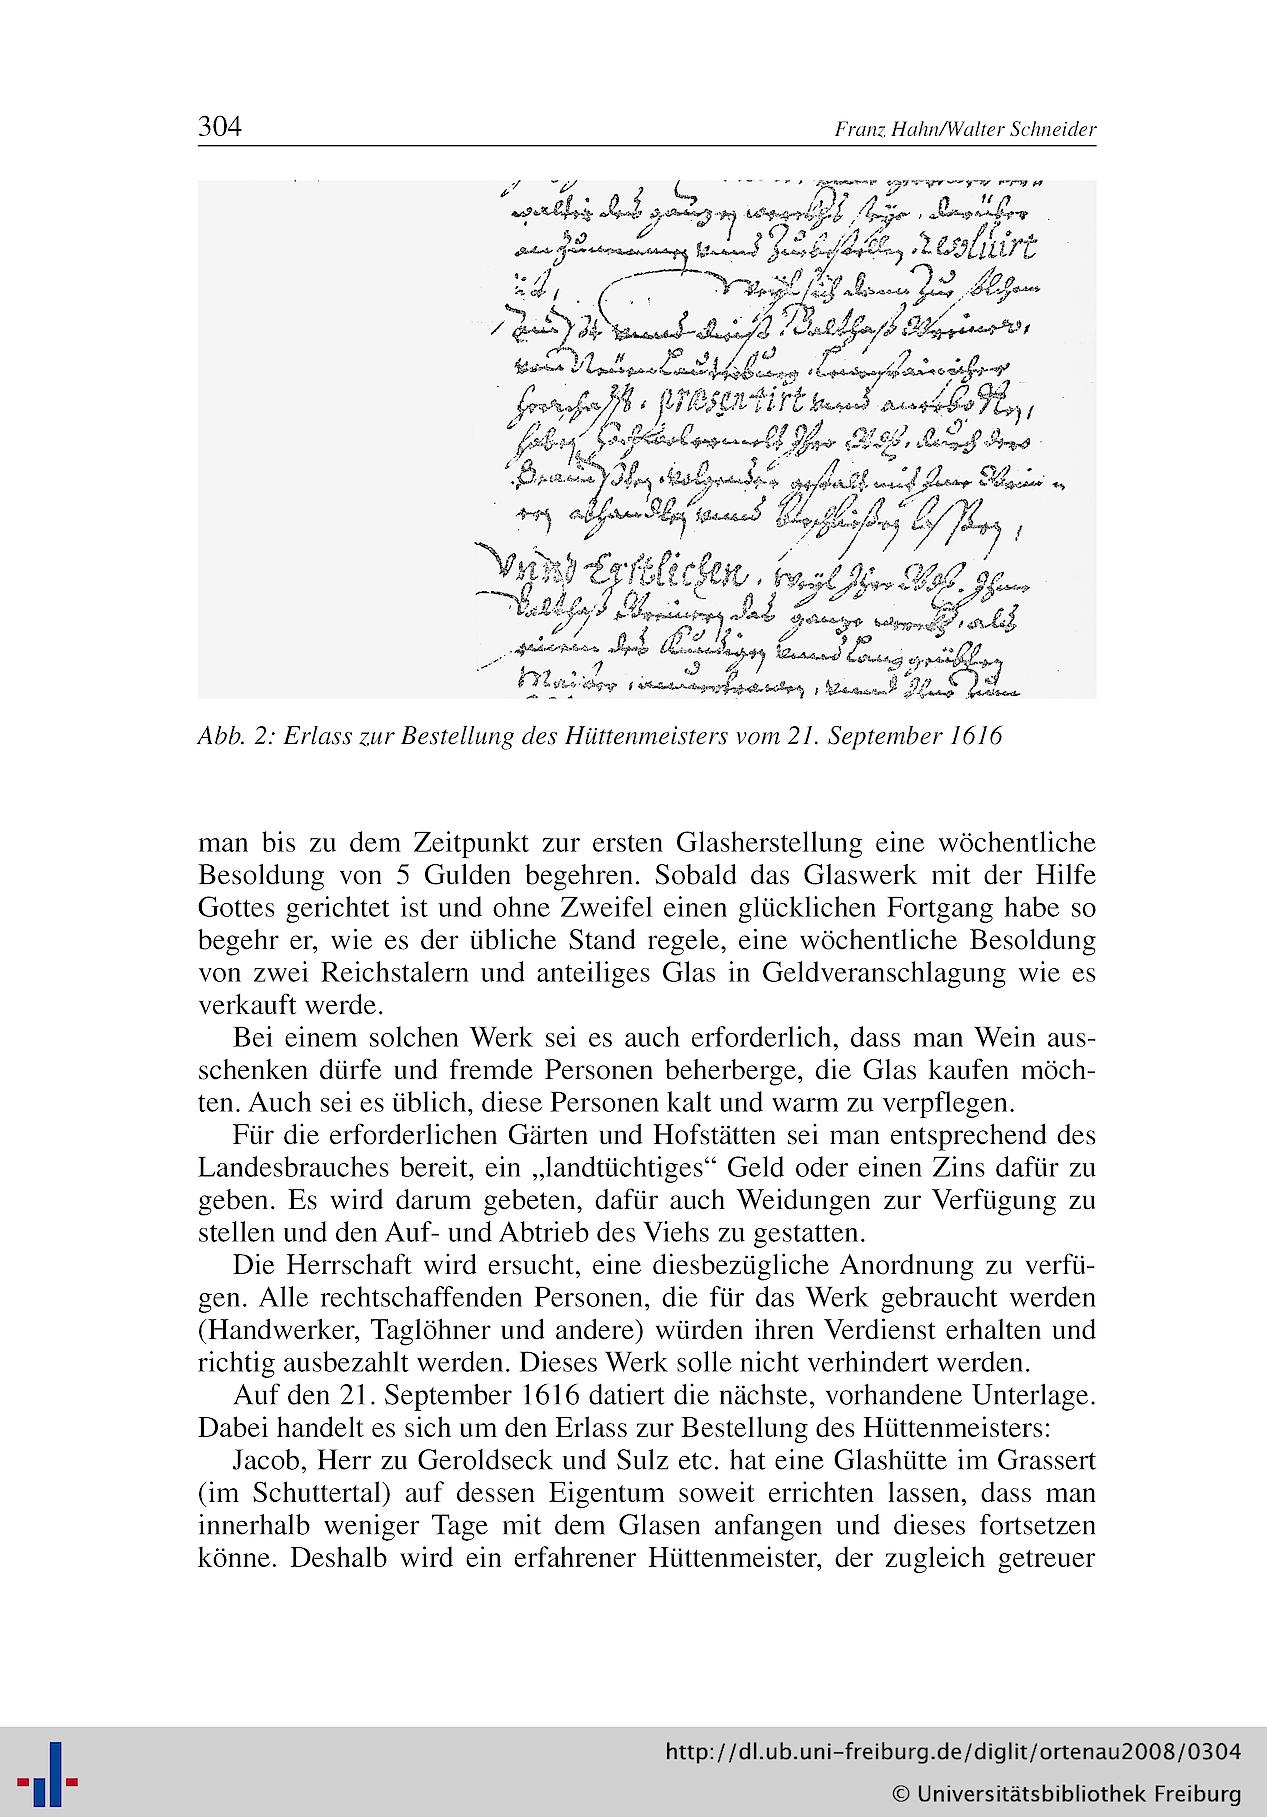 304
Franz Hahn/Walter Schneider
an Zunemmen vnnd Zubestellen, Resoluirt
ist,
Weyl sich dann Zue solchem
herrschafft, præsentirt vnnd anerbotten,
Vnnd Erstlichen, weyl Ihre
Balthaß das ganze werckh, als
einem des Kundigen vnnd Lang geüebten
Maister, vnnd
Abb. 2: Erlass zur Bestellung des Hüttenmeisters vom 21. September 1616
man bis zu dem Zeitpunkt zur ersten Glasherstellung eine wöchentliche
Besoldung von 5 Gulden begehren. Sobald das Glaswerk mit der Hilfe
Gottes gerichtet ist und ohne Zweifel einen glücklichen Fortgang habe so
begehr er, wie es der übliche Stand regele, eine wöchentliche Besoldung
von zwei Reichstalern und anteiliges Glas in Geldveranschlagung wie es
verkauft werde.
Bei einem solchen Werk sei es auch erforderlich, dass man Wein aus-
schenken dürfe und fremde Personen beherberge, die Glas kaufen möch-
ten. Auch sei es üblich, diese Personen kalt und warm zu verpflegen.
Für die erforderlichen Gärten und Hofstätten sei man entsprechend des
Landesbrauches bereit, ein „landtüchtiges“ Geld oder einen Zins dafür zu
geben. Es wird darum gebeten, dafür auch Weidungen zur Verfügung zu
stellen und den Auf- und Abtrieb des Viehs zu gestatten.
Die Herrschaft wird ersucht, eine diesbezügliche Anordnung zu verfü-
gen. Alle rechtschaffenden Personen, die für das Werk gebraucht werden
(Handwerker, Taglöhner und andere) würden ihren Verdienst erhalten und
richtig ausbezahlt werden. Dieses Werk solle nicht verhindert werden.
Auf den 21. September 1616 datiert die nächste, vorhandene Unterlage.
Dabei handelt es sich um den Erlass zur Bestellung des Hüttenmeisters:
Jacob, Herr zu Geroldseck und Sulz etc. hat eine Glashütte im Grassert
(im Schuttertal) auf dessen Eigentum soweit errichten lassen, dass man
innerhalb weniger Tage mit dem Glasen anfangen und dieses fortsetzen
könne. Deshalb wird ein erfahrener Hüttenmeister, der zugleich getreuer
http://dl.ub.uni-freiburg.de/diglit/ortenau2008/0304
© Universitätsbibliothek Freiburg